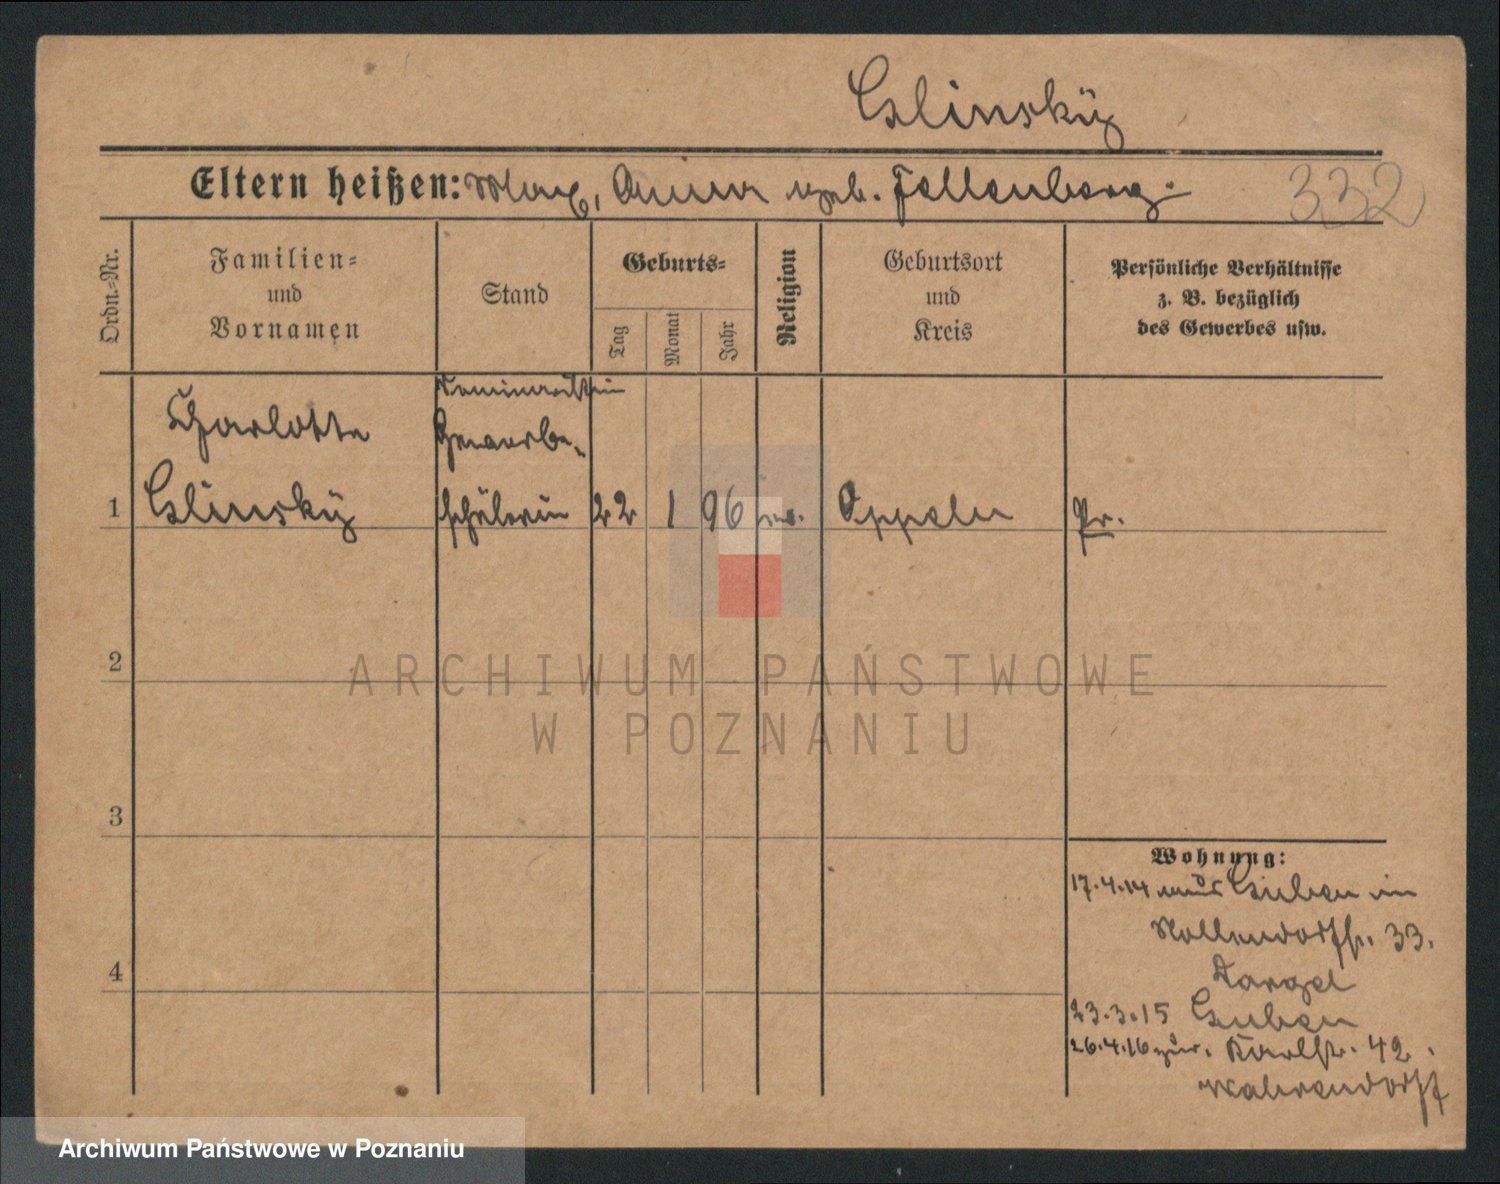 Glinsky
Eltern heißen: Max, Anna geb. Fellenberg.
332
Ordn.-Nr.
Familien-
und
Vornamen
Stand
Geburts-
Tag
Monat
Jahr
Religion
Geburtsort
und
Kreis
Persönliche Verhältnisse
z. B. bezüglich
des Gewerbes usw.
Seminaristin
Charlotte
Gewerbe-
1 Glinsky schülerin 22 1 96 ev. Oppeln Pr.
2
3
4
Wohnung:
17.4.14 aus Guben in
Nollendorfstr. 33.
23.3.15 Guben
26.4.16 zur. Karlstr. 42.
Wahrendorff
ARCHIWUM PAŃSTWOWE
W POZNANIU
Archiwum Państwowe w Poznaniu